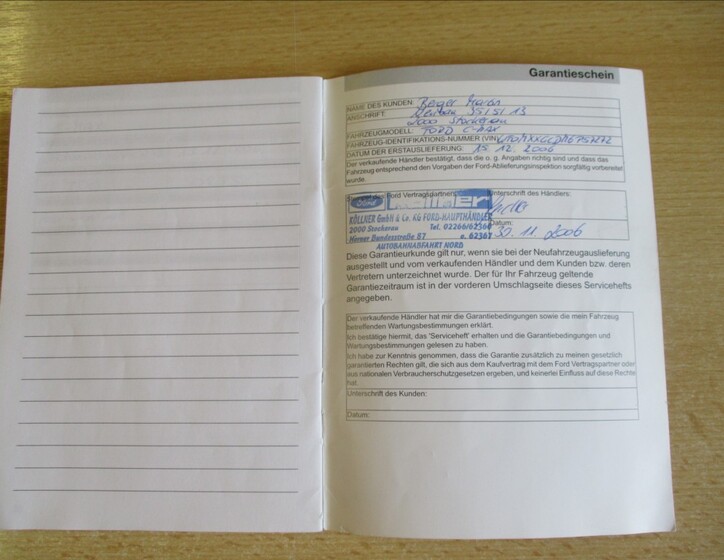 Garantieschein
NAME DES KUNDEN:
ANSCHRIFT: 35/5/13
2000 Stockerau
FAHRZEUGMODELL: FORD C-MAX
FAHRZEUG-IDENTIFIKATIONS-NUMMER (VIN)
DATUM DER ERSTAUSLIEFERUNG: 15. 12. 2006
Der verkaufende Händler bestätigt, dass die o. g. Angaben richtig sind und dass das
Fahrzeug entsprechend den Vorgaben der Ford-Ablieferungsinspektion sorgfältig vorbereitet
wurde.
Ford Vertragspartners
Unterschrift des Händlers:
Ford
KÖLLNER GmbH & Co. KG FORD-HAUPTHÄNDLER
2000 Stockerau Tel. 02266/62360
Horner Bundesstraße 87 o. 62367
AUTOBAHNABFAHRT NORD
Datum:
30. 11. 2006
Diese Garantieurkunde gilt nur, wenn sie bei der Neufahrzeugauslieferung
ausgestellt und vom verkaufenden Händler und dem Kunden bzw. deren
Vertretern unterzeichnet wurde. Der für Ihr Fahrzeug geltende
Garantiezeitraum ist in der vorderen Umschlagseite dieses Servicehefts
angegeben.
Der verkaufende Händler hat mir die Garantiebedingungen sowie die mein Fahrzeug
betreffenden Wartungsbestimmungen erklärt.
Ich bestätige hiermit, das 'Serviceheft' erhalten und die Garantiebedingungen und
Wartungsbestimmungen gelesen zu haben.
Ich habe zur Kenntnis genommen, dass die Garantie zusätzlich zu meinen gesetzlich
garantierten Rechten gilt, die sich aus dem Kaufvertrag mit dem Ford Vertragspartner oder
aus nationalen Verbraucherschutzgesetzen ergeben, und keinerlei Einfluss auf diese Rechte
hat.
Unterschrift des Kunden:
Datum: